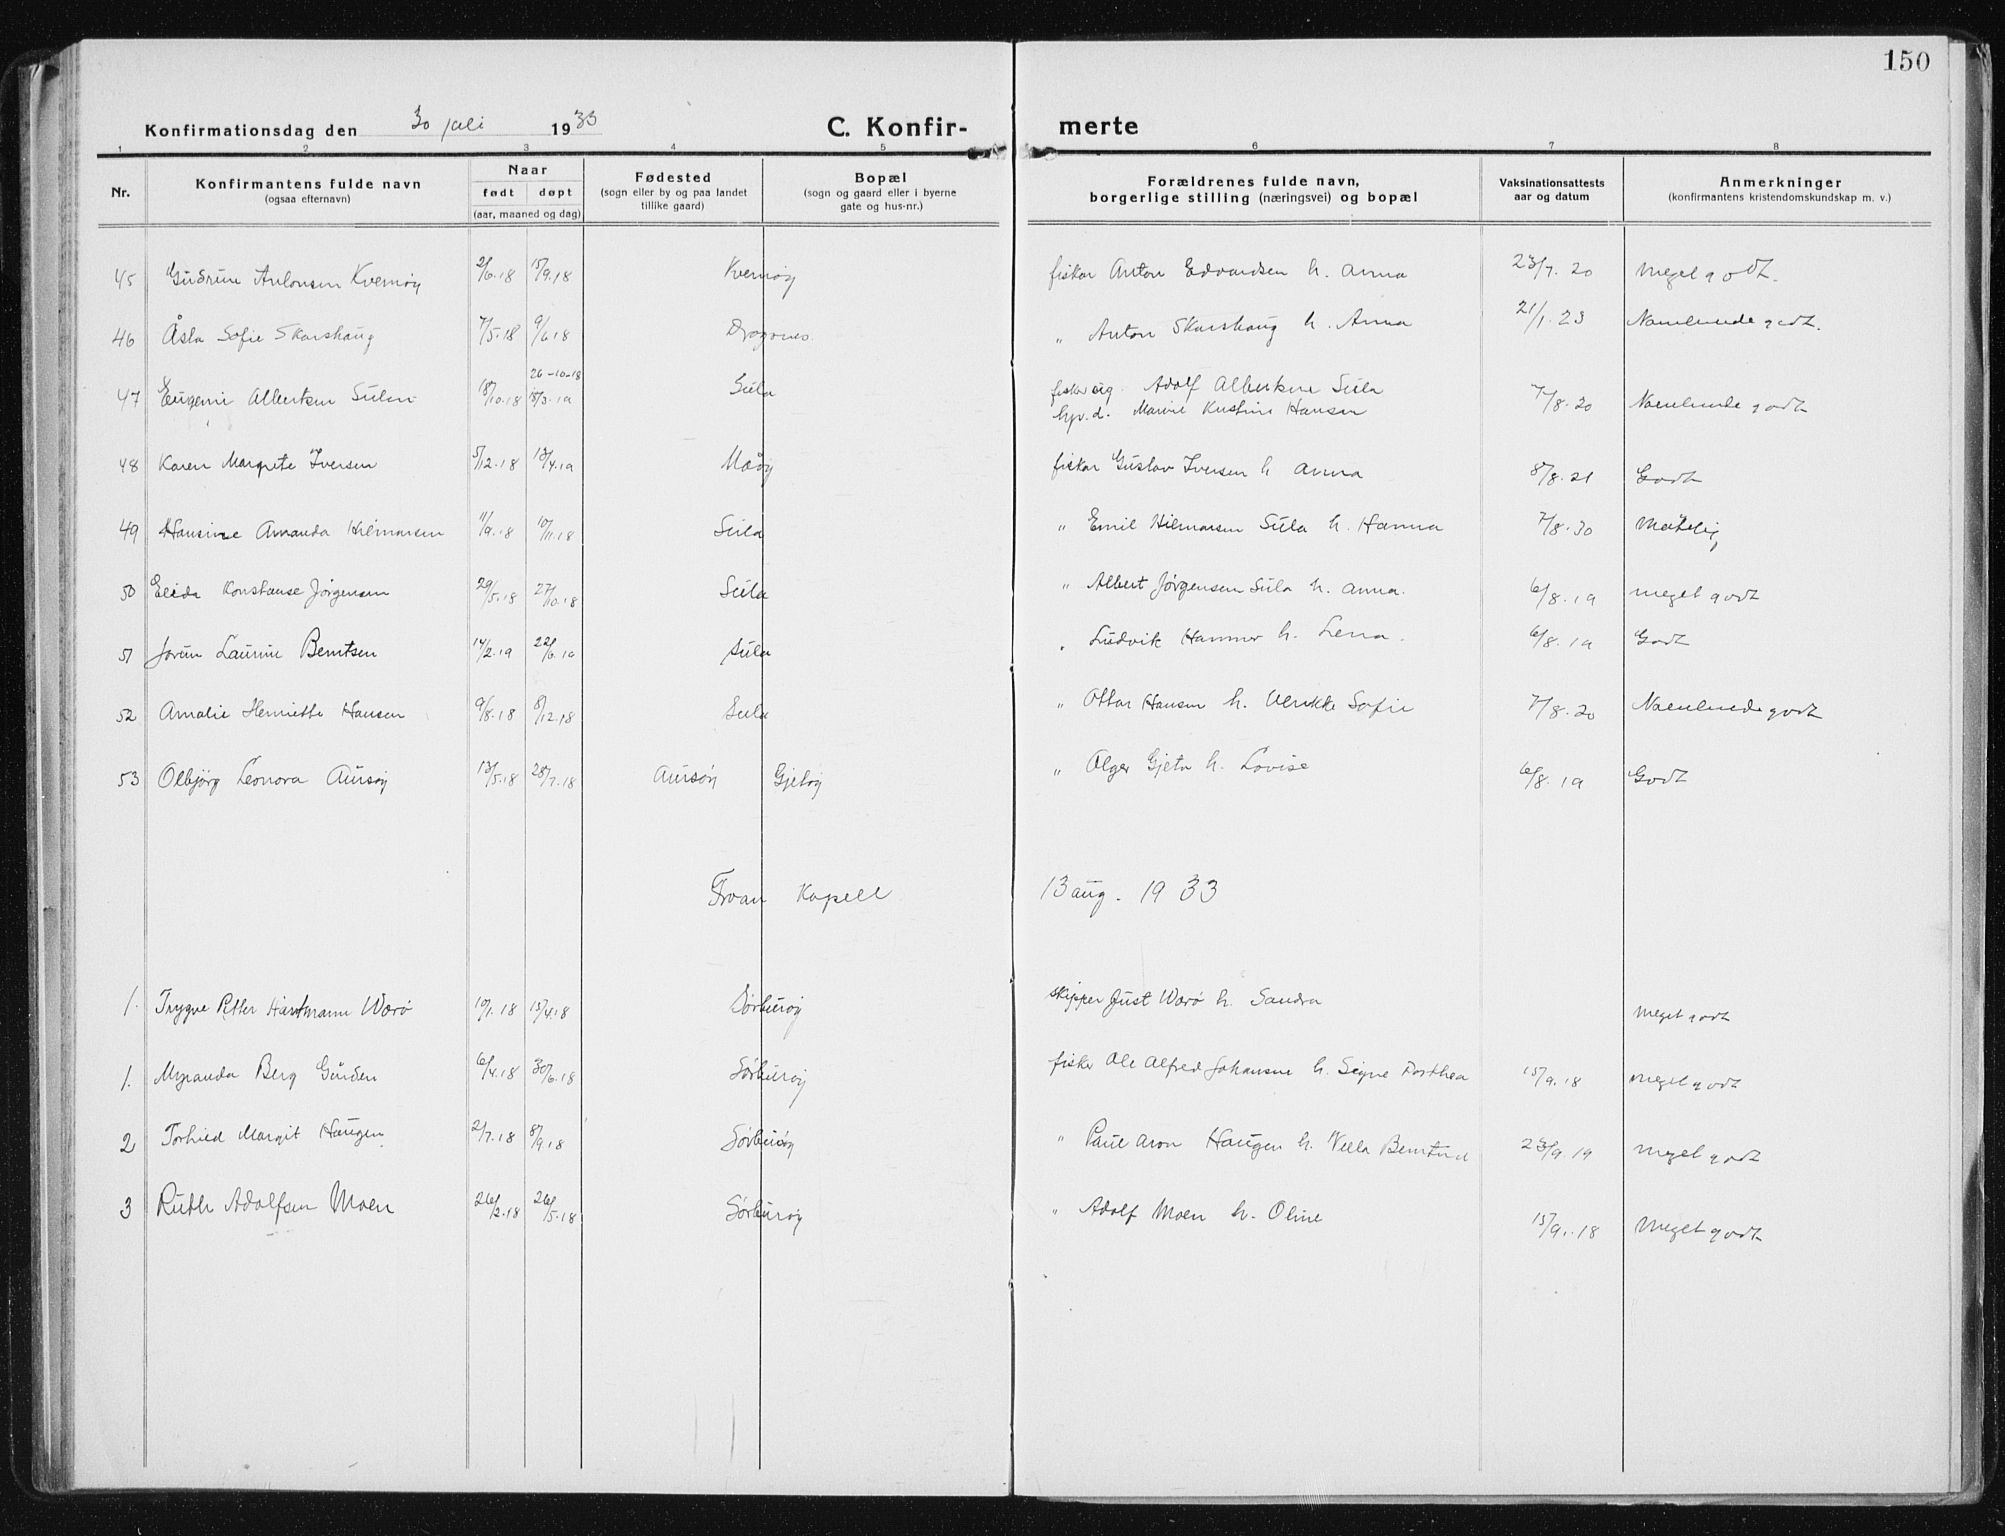 150
Konfirmationsdag den 30 juli 1933 C. Konfir- merte
1 2 3 4 5 6 7 8
Nr.
Konfirmantens fulde navn
(ogsaa efternavn)
Naar
født døpt
(aar, maaned og dag)
Fødested
(sogn eller by og paa landet
tillike gaard)
Bopæl
(sogn og gaard eller i byerne
gate og hus-nr.)
Forældrenes fulde navn,
borgerlige stilling (næringsvei) og bopæl
Vaksinationsattests
aar og datum
Anmerkninger
(konfirmantens kristendomskundskap m. v.)
45 Gudrun Antonsen Kvernøy 2/6.18 15/9.18 Kvernøy fisker Anton Edvardsen h. Anna 23/7.20 Meget godt.
46 Åsta Sofie Skarshaug 7/5.18 9/6.18 " Anton Skarshaug h. Anna 21/1.23 Noenlunde godt.
26-10-18
47 Eugeni Albertsen Sulen 18/10.18 Sula fisker ug. Adolf Albertsen Sula 7/8.20 Noenlunde godt
Hansen
48 Karen Margrete Iversen 5/12.18 13/4.19 Måøy fisker Gustav Iversen h Anna 8/8.21 Godt
49 Hansine Amanda Hilmarsen 11/9.18 10/11.18 Sula " Emil Hilmarsen Sula h. Hanna 7/8.30 Måtelig
50 Elida Konstanse Jørgensen 29/5.18 27/10.18 Sula " Albert Jørgensen Sula h. Anna. 6/8.19 meget godt
51 Jorun Laurine Berntsen 14/2.19 22/6.19 Sula " Ludvik Hammer h. Lena. 6/8.19 Godt
52 Amalie Henriette Hansen 9/8.18 8/12.18 Sula " Ottar Hansen h. Ulrikke Sofie 7/8.20 Noenlunde godt
53 Olbjørg Leonora Aursøy 13/5.18 28/7.18 Aursøy Gjetøy " Olger Gjetø h. Lovise 6/8.19 Godt
Froan Kapell 13 aug. 1933
1. Trygve Petter Hartmann Værø 10/1.18 15/4.18 Sørburøy skipper Just Værø h. Sandra Meget godt
1. Myranda Berg Gurden 6/4.18 30/6.18 Sørburøy fisker Ole Alfred Johansen h. Signe Dorthea 15/9.18 Meget godt
2 Torhild Margit Haugen 2/7.18 8/9.18 Sørburøy " Paul Aron Haugen h. 23/9.19 Meget godt
3 Ruth Adolfsen Moen 26/2.18 26/5.18 Sørburøy " Adolf Moen h. Oline 15/9.18 Meget godt